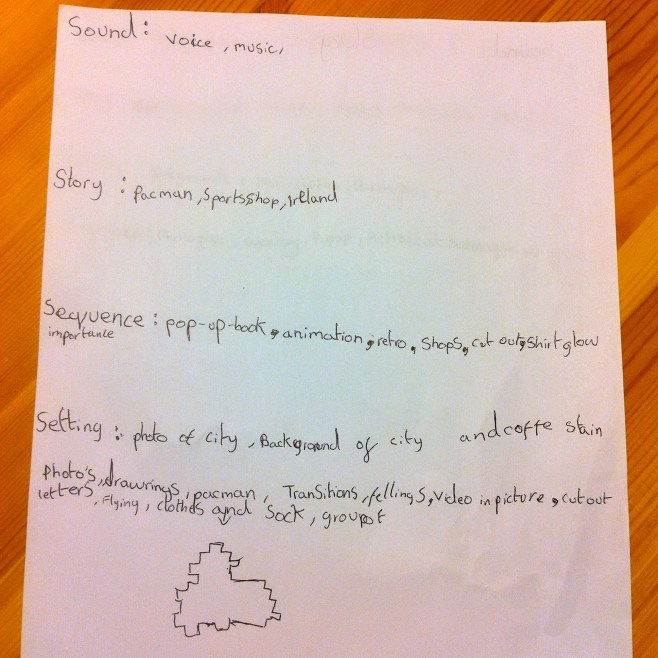 Sound: voice, music,
Story : pacman, Sportsshop, Ireland
Sequence : pop-up-book, animation, retro, Shops, cut out, Shirt glow
importance
Setting : photo of city, Background of city and coffe stain
photo's, drawrings, pacman, Transitions, fellings, video in picture, cut out
letters, Flying, clothes and Sock,